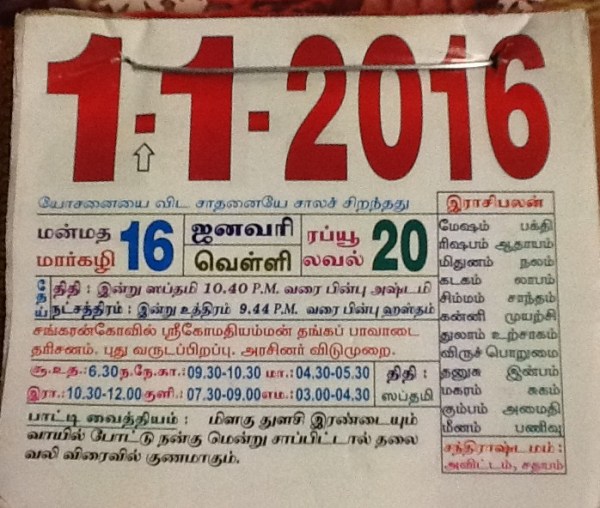 1-1-2016
யோசனையை விட சாதனையே சாலச் சிறந்தது
மன்மத
மார்கழி
16
ஜனவரி
வெள்ளி
ரப்யூ
லவல்
20
திதி : இன்று ஸப்தமி 10.40 P.M. வரை பின்பு அஷ்டமி
நட்சத்திரம் : இன்று உத்திரம் 9.44 P.M. வரை பின்பு ஹஸ்தம்
சங்கரன்கோவில் ஸ்ரீகோமதியம்மன் தங்கப் பாவாடை
தரிசனம். புது வருடப்பிறப்பு. அரசினர் விடுமுறை.
சூ.உத.: 6.30 ந.நே.கா.: 09.30-10.30 மா.: 04.30-05.30
இரா.: 10.30-12.00 குளி.: 07.30-09.00 எம.: 03.00-04.30
திதி :
ஸப்தமி
பாட்டி வைத்தியம் : மிளகு துளசி இரண்டையும்
வாயில் போட்டு நன்கு மென்று சாப்பிட்டால் தலை
வலி விரைவில் குணமாகும்.
இராசிபலன்
மேஷம் பக்தி
ரிஷபம் ஆதாயம்
மிதுனம் நலம்
கடகம் லாபம்
சிம்மம் சாந்தம்
கன்னி முயற்சி
துலாம் உற்சாகம்
விருச் பொறுமை
தனுசு இன்பம்
மகரம் சுகம்
கும்பம் அமைதி
மீனம் பணிவு
சந்திராஷ்டமம் :
அவிட்டம், சதயம்